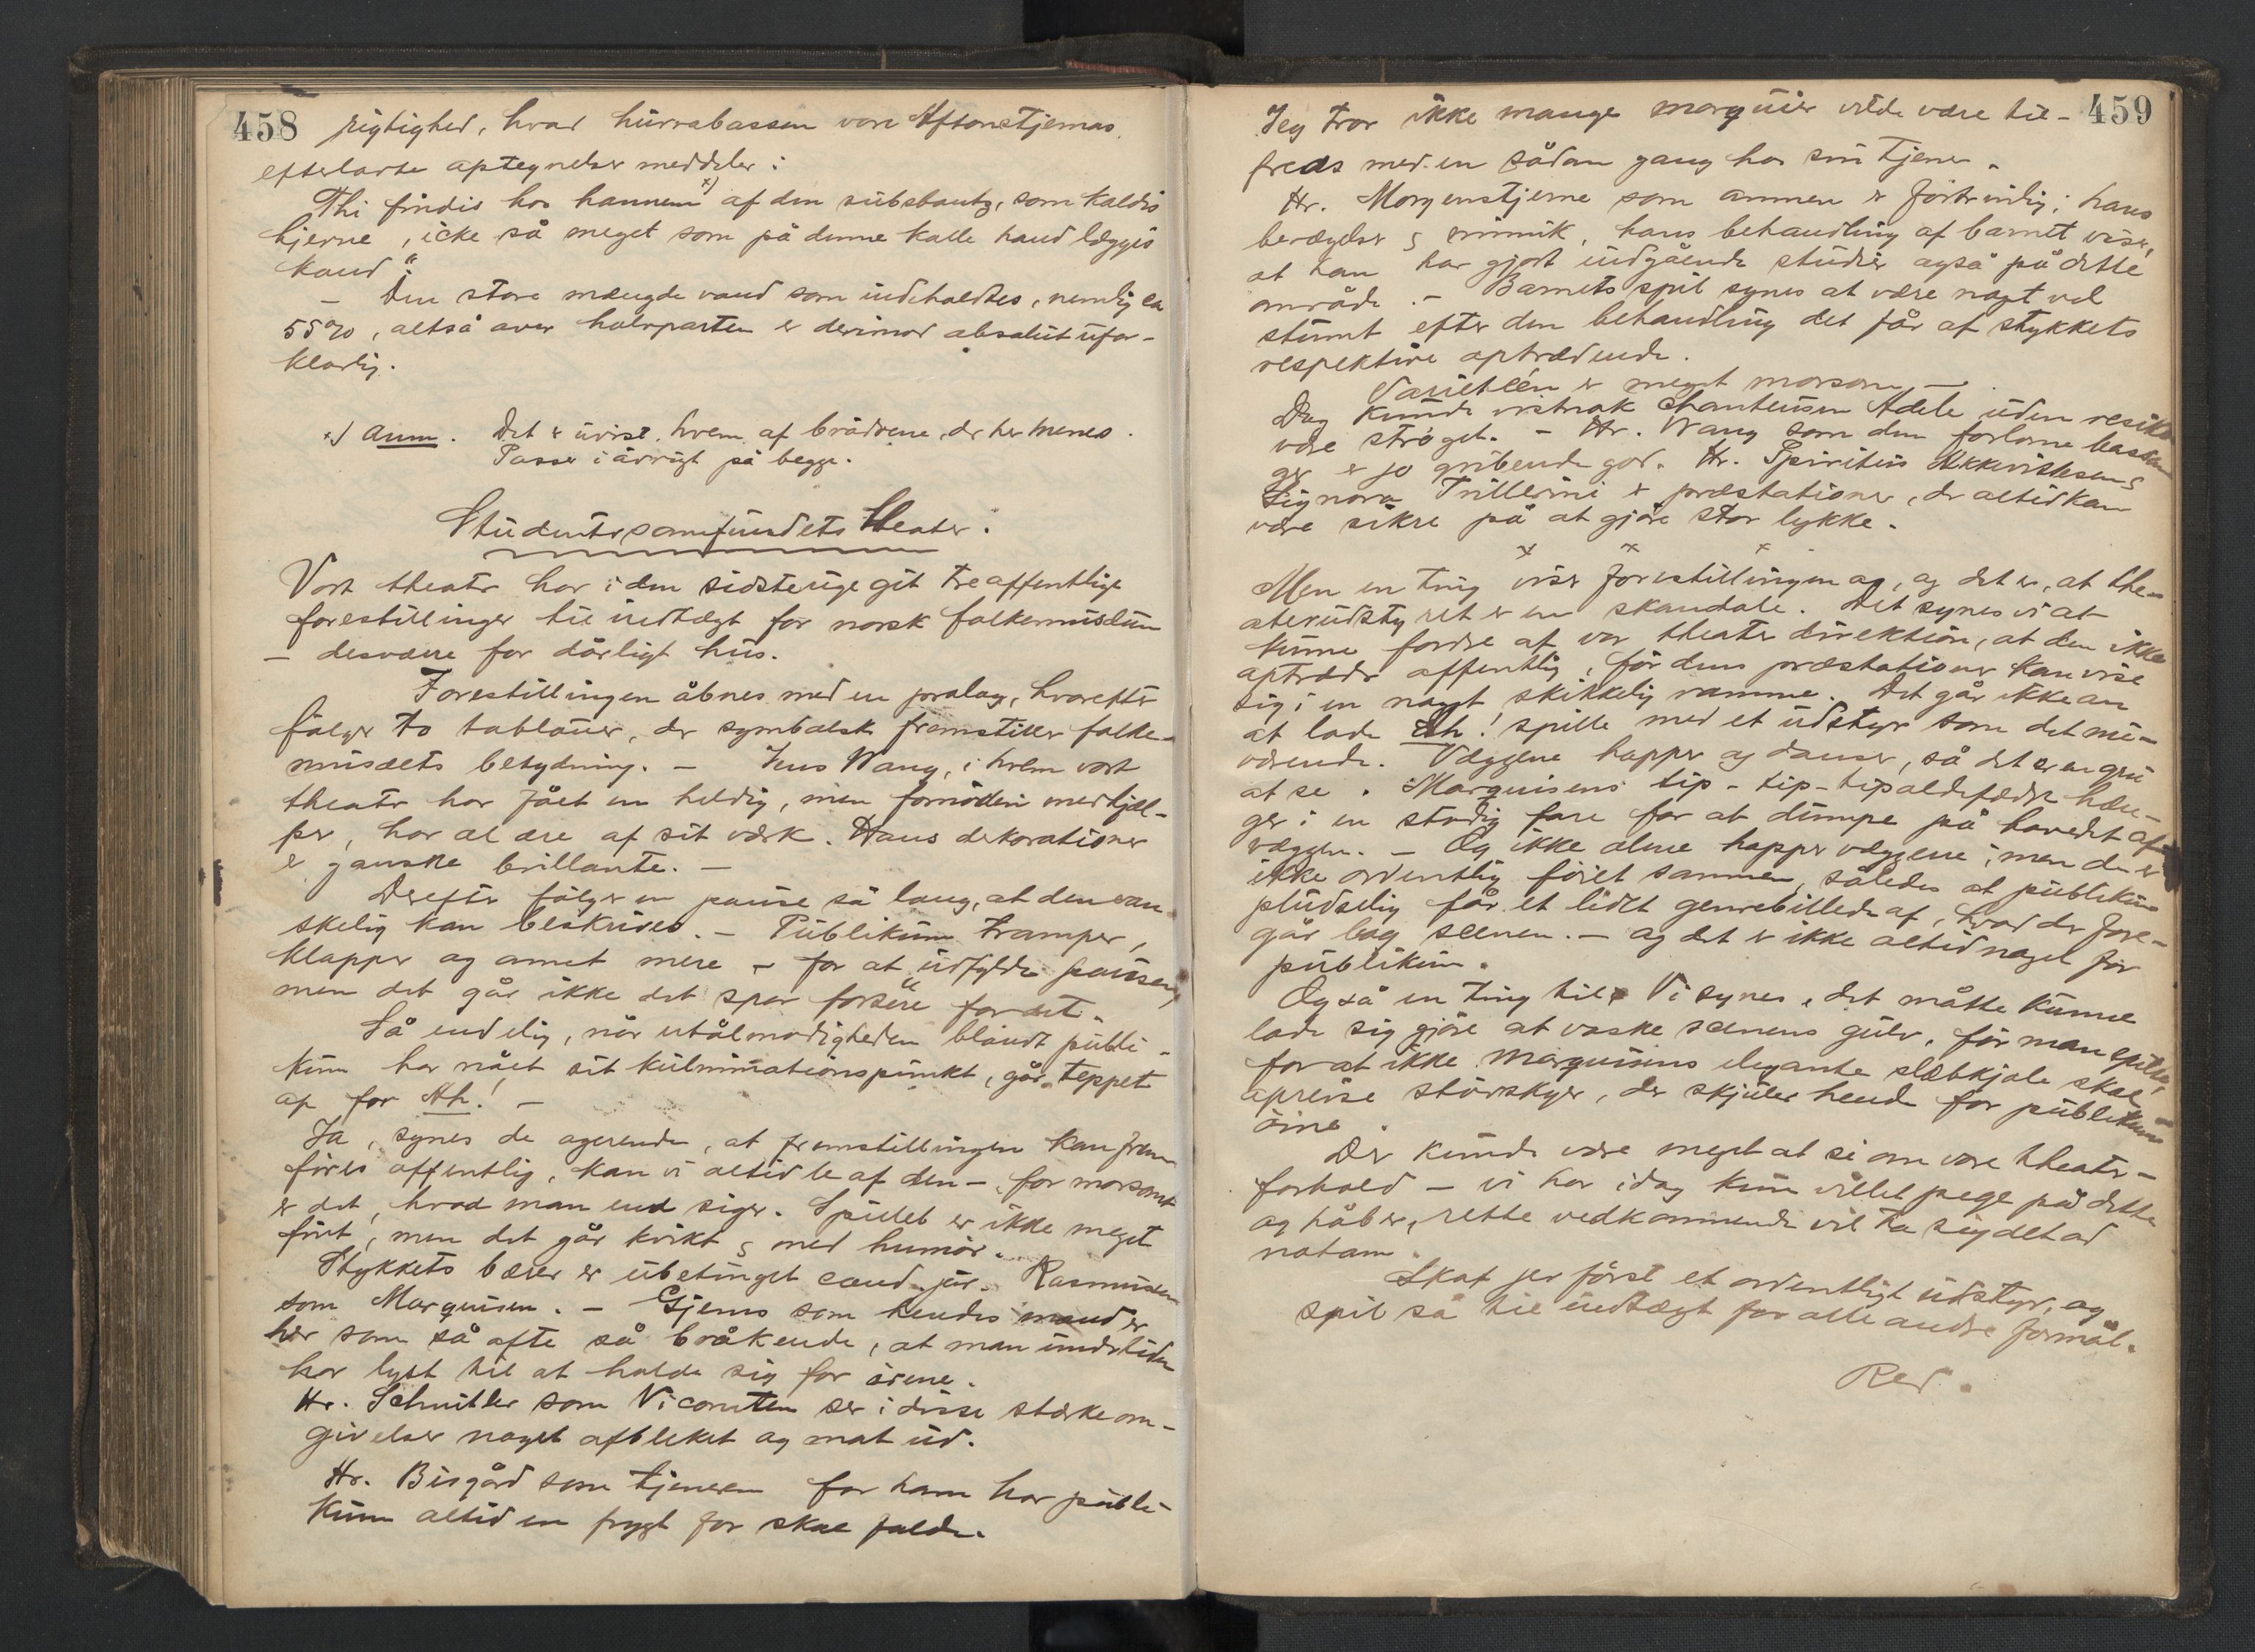 458 rigtighed, hvad hurrabassen vore Aftenstjernas
efterladte optegnelser meddeler:
Thi findis hos hannem x) af den substantz, som kaldis
hjerne, icke så meget som på denne kalle haud læggis
kand"
– Den store mængde vand som indeholdtes, nemlig ca
55%, altså over halvparten er derimod absolut ufor-
klarlig.
x) Anm. Det er uvist, hvem af brødrene, der her menes.
Passer iøvrigt på begge.
Studentersamfundets Theater.
Vort theater har i den sidste uge git tre offentlige
forestillinger til indtægt for norsk folkemuseum
– desværre for dårligt hus.
Forestillingen åbnes med en prolog, hvorefter
følger to tablauer, der symbolsk fremstiller folke-
museets betydning. – Jens Wang, i hvem vort
theater har fået en heldig, men fornøden medhjæl-
per, har al ære af sit værk. Hans dekorationer
er ganske brillante. –
Derefter følger en pause så lang, at den van-
skelig kan beskrives. – Publikum tramper,
klapper og annet mere – for at udfylde pausen,
men det går ikke det spor forsere for det.
Så endelig, når utålmodigheden blandt publi-
kum har nået sit kulminationspunkt, går teppet
op for Ah! –
Ja, synes de agerende, at fremstillingen kan frem
føres offentlig, kan vi altid le af den –, for morsomt
er det, hvad man end siger. Spillet er ikke meget
fint, men det går kvikt & med humør.
Stykkets bærer er ubetinget cand. jur. Rasmussen
som Marquisen. – Gjems som hendes mand er
her som så ofte så bråkende, at man undertiden
har lyst til at holde sig for ørene.
Hr. Schnitler som Vicomten ser i disse stærke om-
givelser noget afbleket og mat ud.
Hr. Bisgård som tjeneren for ham har publi-
kum altid en frygt for skal falde.
Jeg tror ikke mange marquier vilde være til- 459
freds med en sådan gang hos sin tjener.
Hr. Morgenstjerne som ammen er fortrinlig; hans
bevægelser & mimik, hans behandling af barnet viser,
at han har gjort indgående studier også på dette
område. – Barnets spil synes at være nogt vel
stumt efter den behandling det får af stykkets
respektive optrædende.
Varietéen er meget morsom. –
Dog kunde vistnok Chanteusen Adele uden resiko
være strøget. – Hr. Wang som den forlorne bassan
ger er jo gribende god. Hr. Spiritus Akkevitksen &
Signora Trillerini er præstationer, der altid kan
være sikre på at gjøre stor lykke.
x x x
Men en ting viser forestillingen og, og det er, at the-
aterudstyret er en skandale. Det synes vi at
kunne fordre af vor theater direktion, at den ikke
optræder offentlig, før dens præstationer kan vise
sig i en nogt skikkelig ramme. Det går ikke an
at lade Ah! spille med et udstyr som det nu-
værende. Væggene happer og danser, så det er en gru
at se. Marquisens tip-tip-tipoldefædre hæn-
ger i en stadig fare for at dumpe på hovedet af
væggen. – Og ikke alene happer væggene; men de er
ikke ordentlig føiet sammen, således at publikum
pludselig får et lidet genrebillede af, hvad der fore-
går bag scenen. – og det er ikke altid noget for
publikum.
Også en ting til. Vi synes, det måtte kunne
lade sig gjøre at vaske scenens gulv, før man spiller,
for at ikke Marquisens elegante slæbkjole skal
opreise støvskyer, der skjuler hende for publikums
øine.
Der kunde være meget at si om vore theater-
forhold – vi har idag kun villet pege på dette
og håber, rette vedkommende vil ta sig det ad
notam.
Skaf jer først et ordentligt udstyr, og
spil så til indtægt for alle andre formål.
Red.